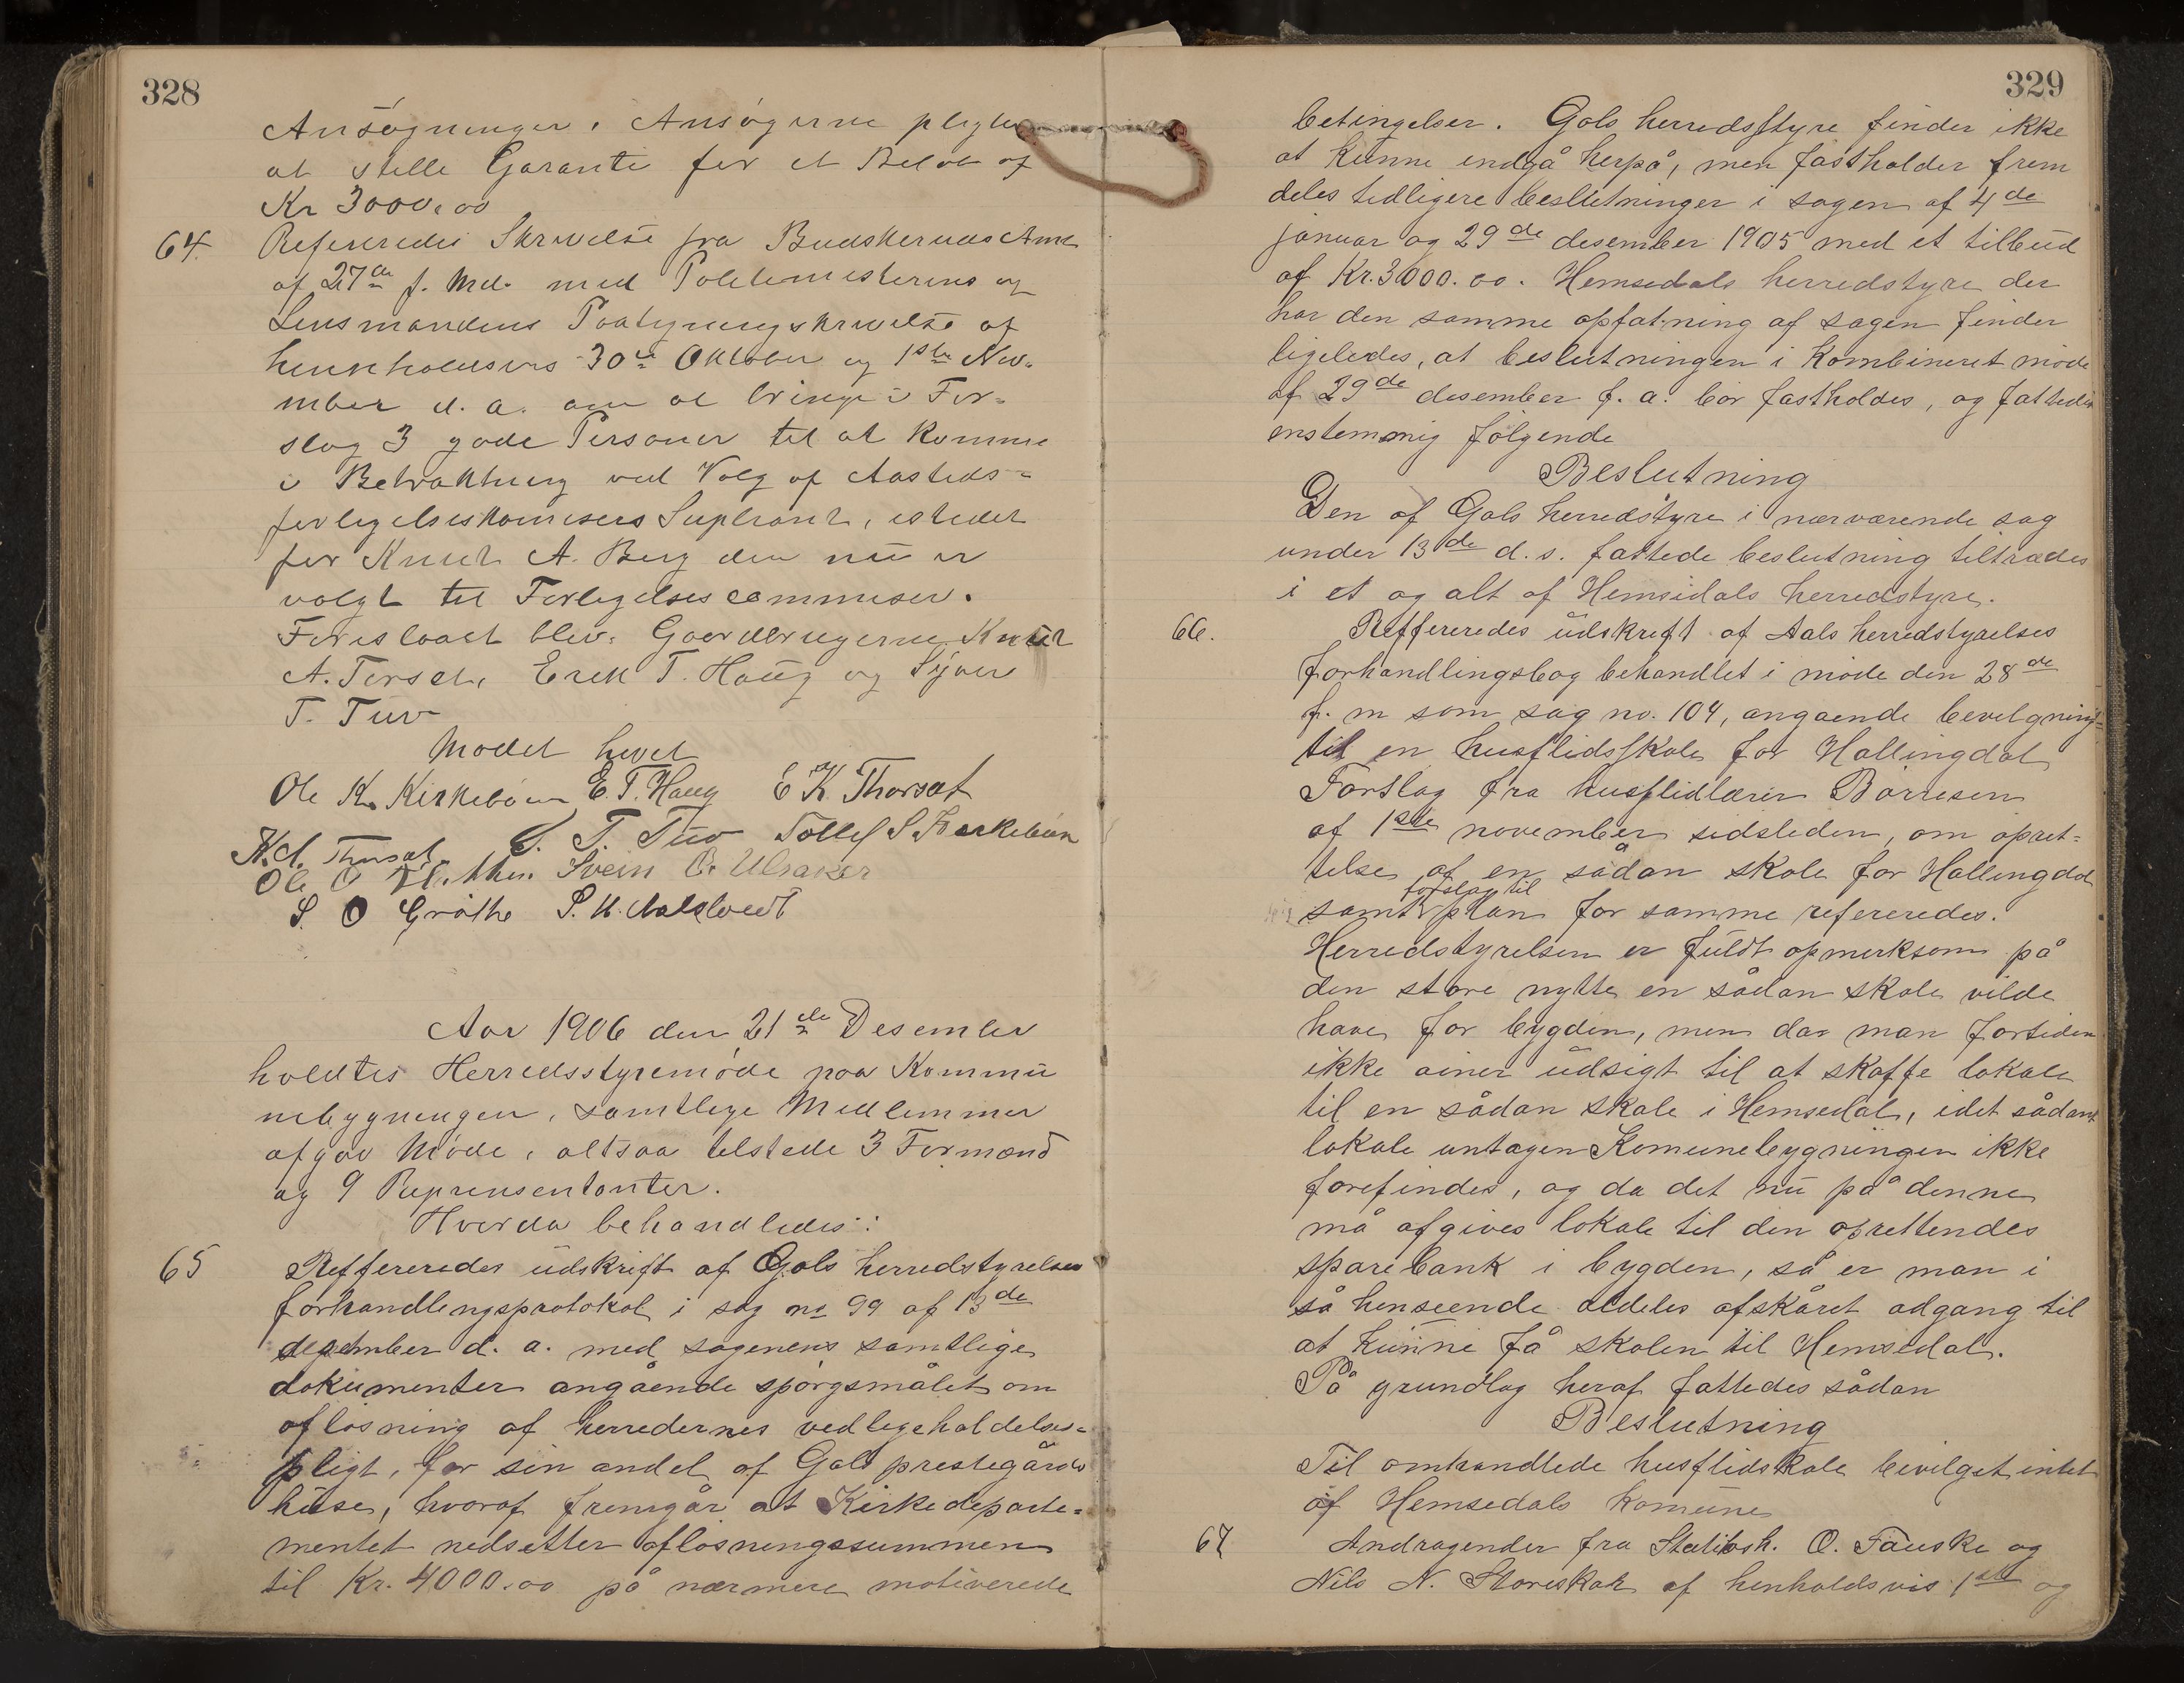 328
Ansøgninger. Ansøgerne pligter
at stelle Garanti for et Beløb af
Kr 3000,00
64. Refereredes Skrivelse fra Buskeruds Amt
af 27de f. Md. med Politimesterens og
Lensmandens Paategningskrivelse af
henholdsvis 30te Oktober og 1ste Nov-
mber d. a. om at bringe i For-
slag 3 gode Personer til at komme
i Betraktning ved Valg af Aasteds-
forligelseskomisers Supleant, istedet
for Knut A. Berg den nu er
valgt til Forligelsescommiser.
Foreslaaet blev: Gaardbrugerne Knut
A. Torset, Erik T. Haug og Syver
T. Tuv
Mødet hævet
Ole K. Kirkebøen E. T. Haug E K. Thorset
K. A. Thorset S. T. Tuv Tollef S Kirkebøen
Ole O Svein O. Ulsaker
S. O Grøthe S. H.
Aar 1906 den 21de Desember
holdtes Herredsstyremøde paa Kommu
nebygningen, samtlige Medlemmer
afgav Møde, altsaa telstede 3 Formænd
og 9 Repræsentanter.
Hvorda behandledes:
65 Reffereredes udskrift af Gols herredstyrelses
forhandlingsprotokol i sag no 99 af 13de
desember d. a. med sagenens samtlige
dokumenter angående spørgsmålet om
afløsning af herredernes vedligeholdelses-
pligt, for sin andel af Gols prestegårds
huse, hvoraf fremgår at Kirkedeparte-
mentet nedsetter afløsningssummen
til Kr. 4000.00 på nærmere motiverede
329
betingelser. Gols herredsstyre finder ikke
at kunne endgå herpå, men fastholder frem
deles tidligere beslutninger i sagen af 4de
januar og 29de desember 1905 med et tilbud
af Kr. 3000.00. Hemsedals herredstyre der
har den samme opfatning af sagen finder
ligeledes, at beslutningen i kombineret møde
af 29de desember f. a. bør fastholdes, og fattedes
enstemmig følgende
Beslutning
Den af Gols herredstyre i nærværende sag
under 13de d. s. fattede beslutning tiltrædes
i et og alt af Hemsidals herredstyre.
66. Reffereredes udskrift af Aals herredstyrelses
forhandlingsbog behandlet i møde den 28de
f. m som sag no. 104, angaende bevilgning
til en husflidsskole for Hallingdal
Forslag fra husflidlærer Børresen
af 1ste november sidstleden, om opret-
telse af en sådan skole for Hallingdal
samt forslag til plan for samme refereredes.
Herredstyrelsen er fuldt opmerksom på
den store nytte en sådan skole vilde
have for bygden, men dar man fortiden
ikke øiner udsigt til at skaffe lokale
til en sådan skole i Hemsedal, idet sådant
lokale untagen Komunebygningen ikke
forefindes, og da det nu på denne
må afgives lokale til den oprettendes
sparebank i bygden, så er man i
så henseende aldeles afskåret adgang til
at kunne få skolen til Hemsedal.
På grundlag heraf fattedes sådan
Beslutning
Til omhandlede husflidskole bevilget intet
af Hemsedals komune
67 Andragender fra O. Fauske og
Nils N. Storeskar af henholdsvis 1ste og